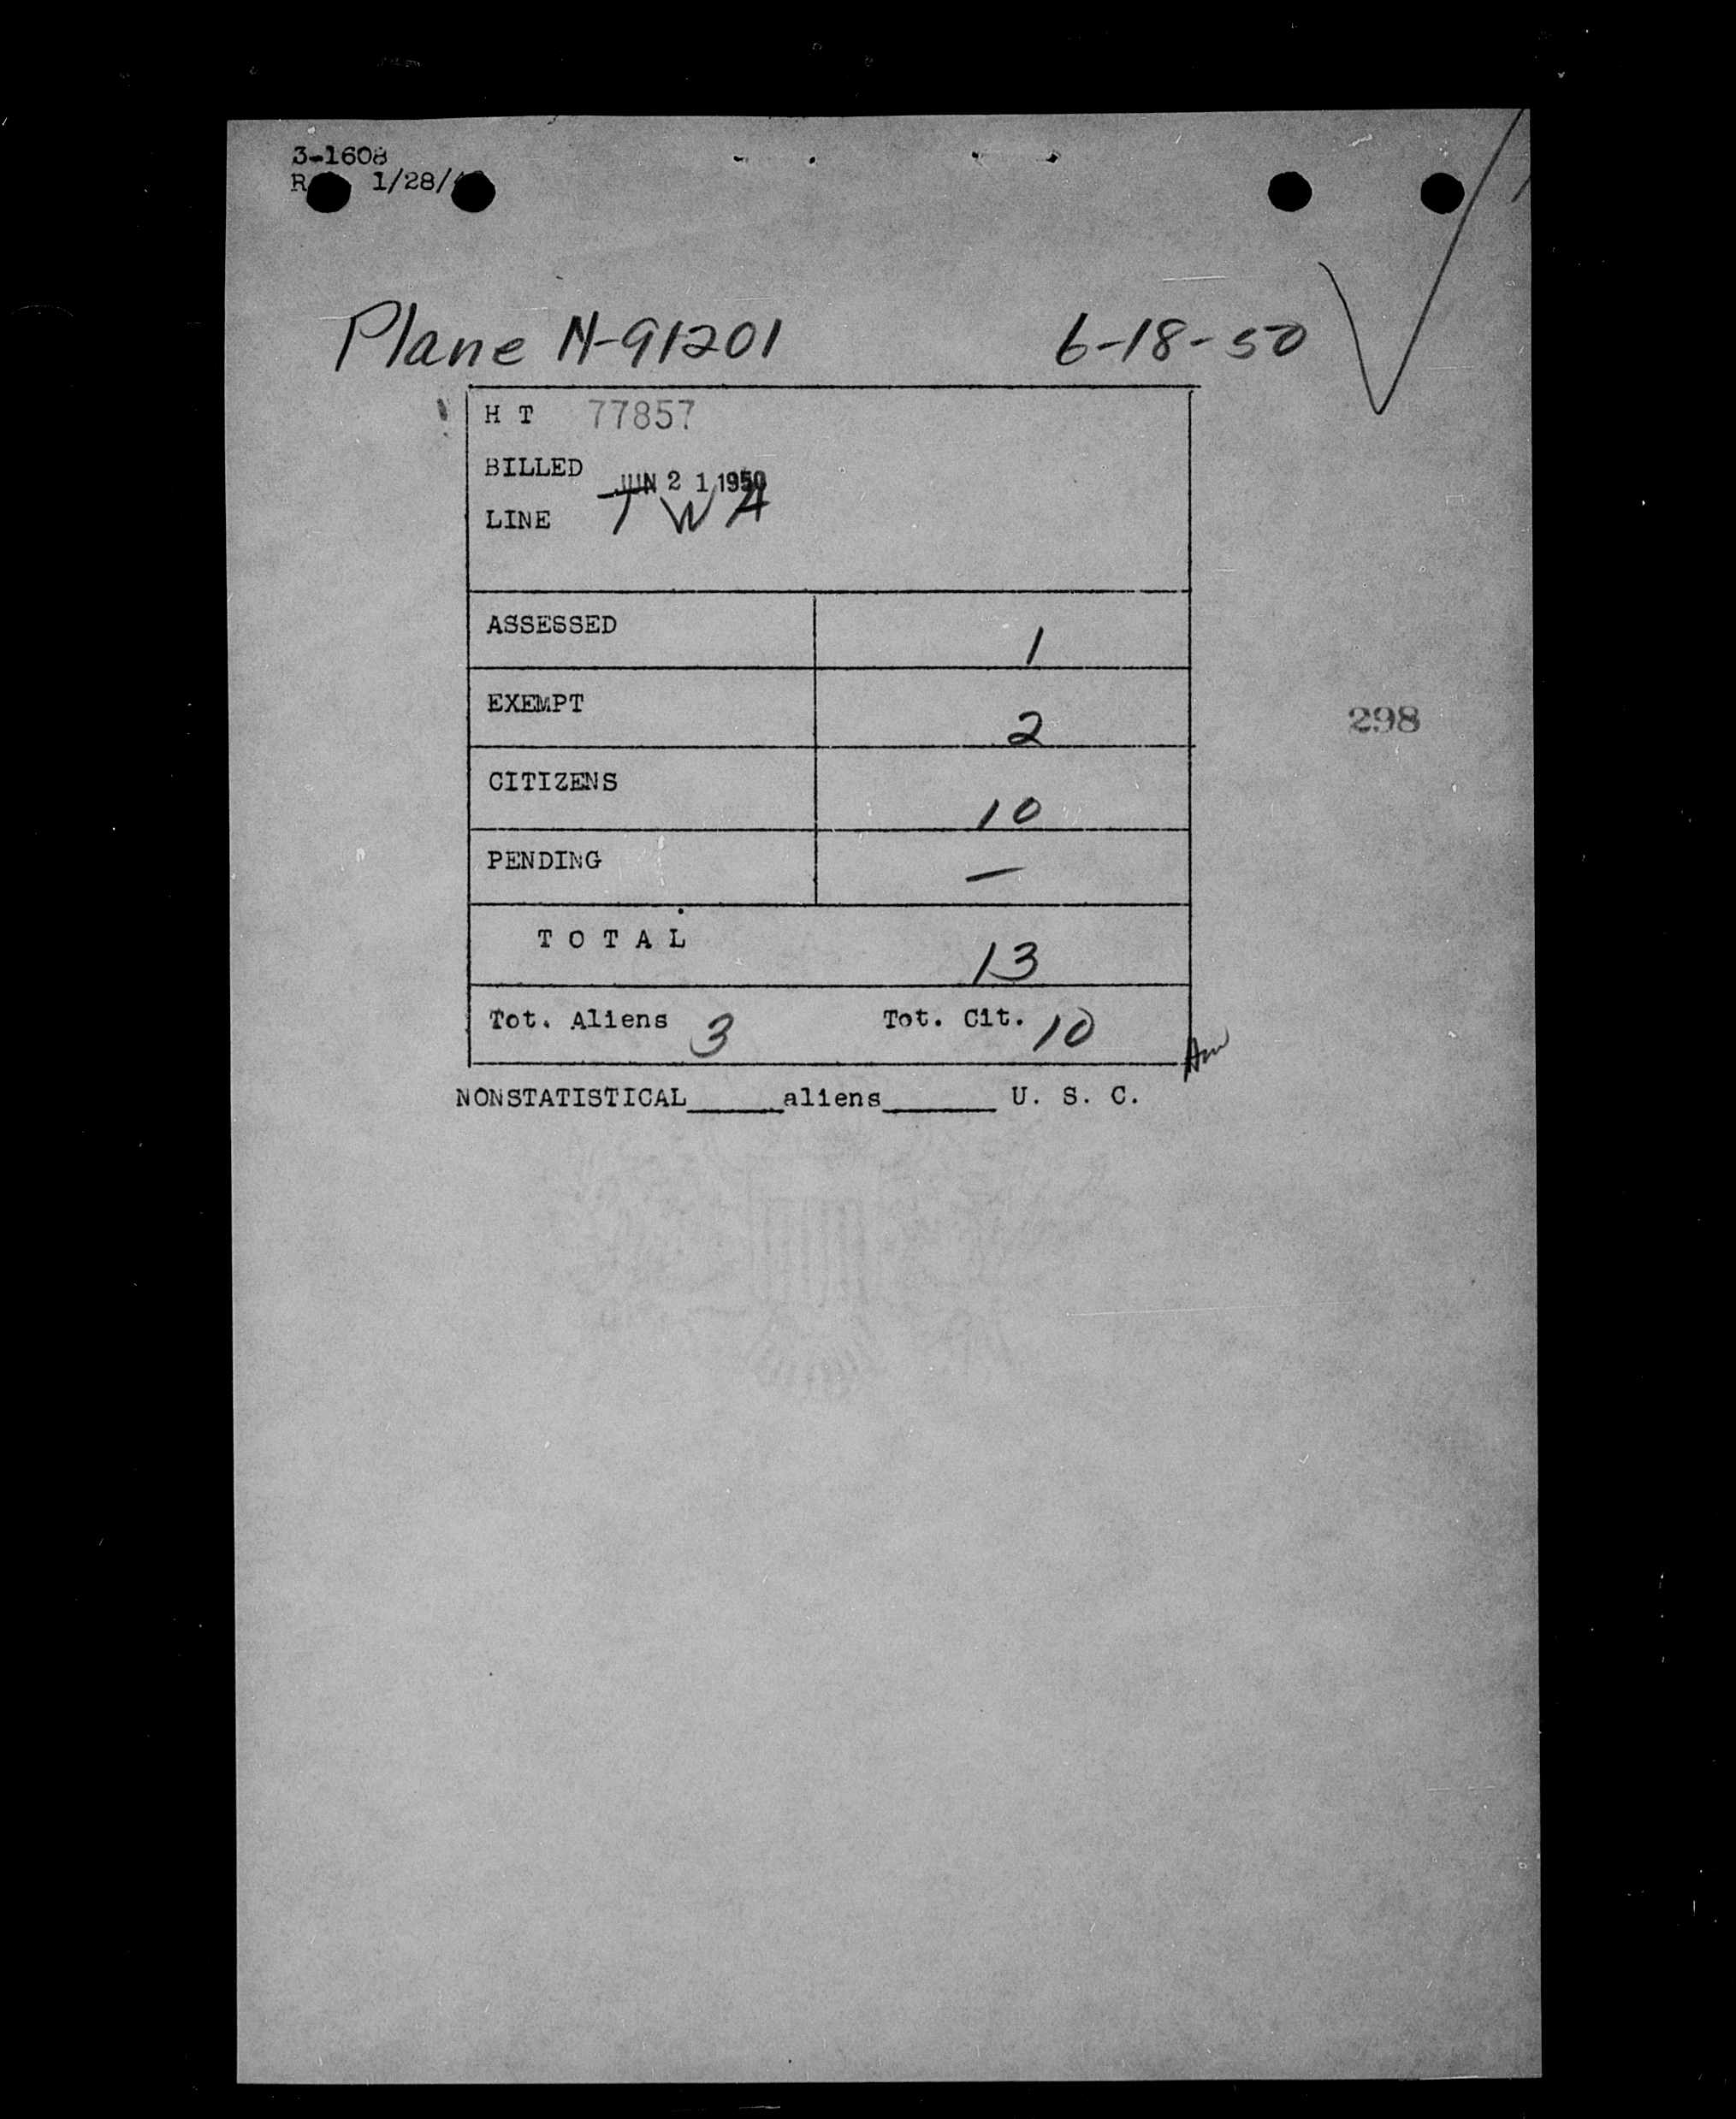 3-1608
1/28/
Plane N-91201 6-18-50
H T 77857
BILLED JUN 21 1950
LINE TWA
ASSESSED 1
EXEMPT 2
298
CITIZENS 10
PENDING —
TOTAL 13
Tot. Aliens 3 Tot. Cit. 10
NONSTATISTICAL_____aliens______ U. S. C.